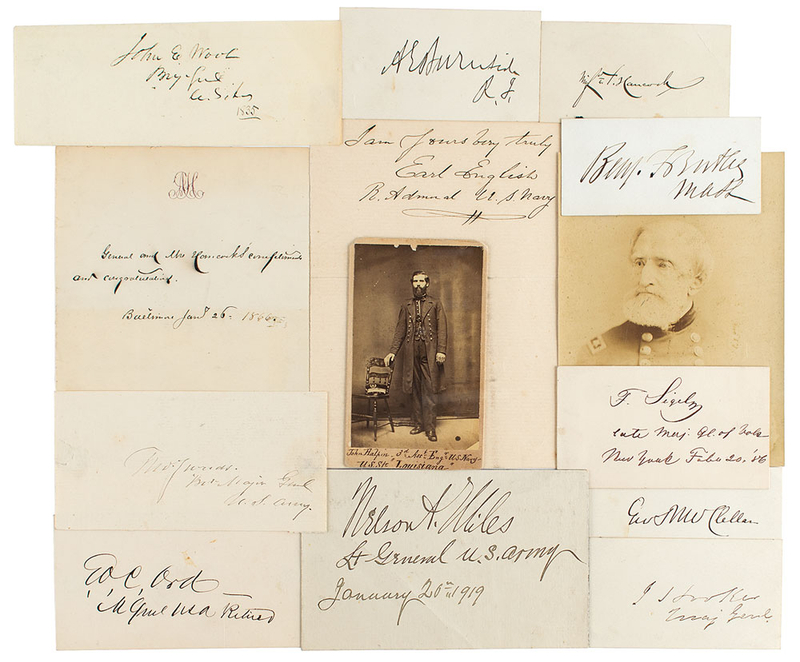 John E. Wool
Brig. Genl.
U. S. A.
1835
A E Burnside
R. I.
Winf'd S. Hancock
I am yours very truly
Earl English
R. Admiral U. S. Navy
Benj. F Butler
Mass
General and Mrs Hancock's compliments
and congratulations.
Baltimore Jany 26. 1866
John Ralpin 3d Ast. Eng. U.S. Navy
U.S. Str "Louisiana"
F. Sigel
late Maj. Gl. of Vols
New York Feb. 20. '86
Bvt Major Genl
U.S. Army.
Geo B McClellan
Nelson A. Miles
Lt General U.S. Army
January 20th 1919
E. O. C. Ord
M Genl USA Retired
J Hooker
Maj Genl